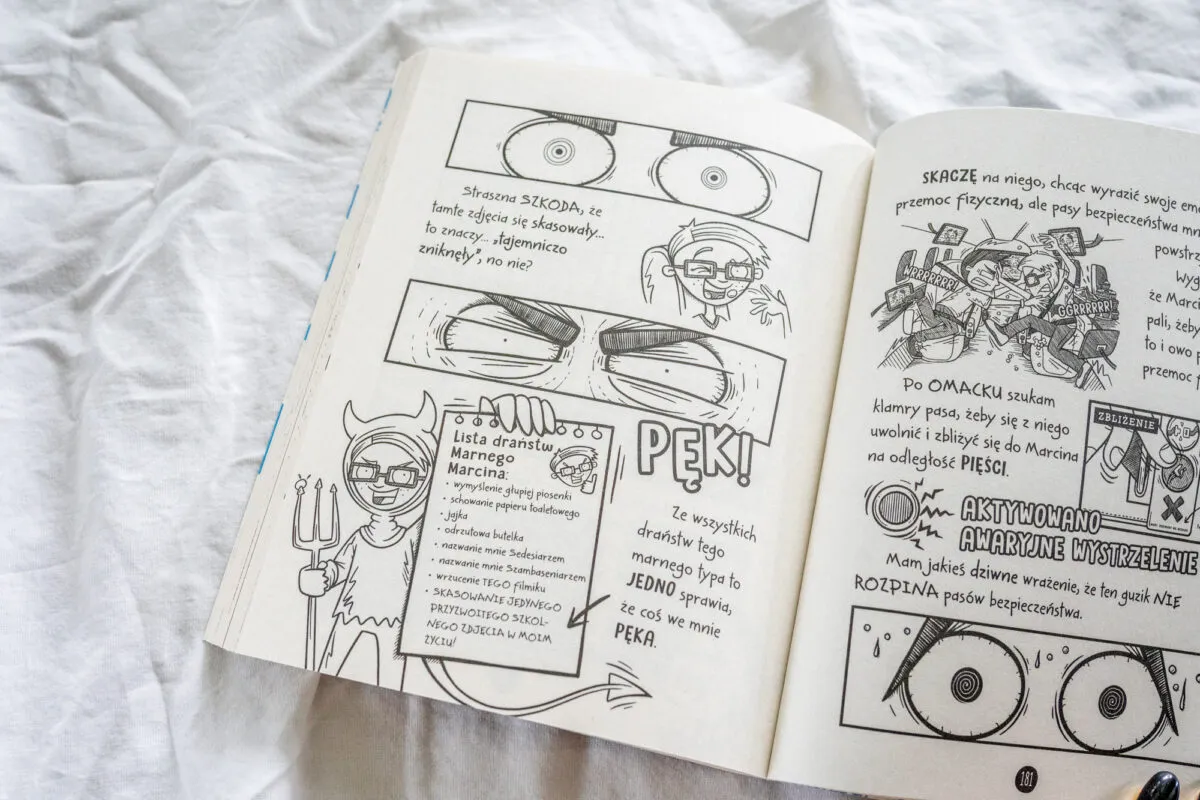 Straszna SZKODA, że
tamte zdjęcia się skasowały...
to znaczy... „tajemniczo
zniknęły”, no nie?
Lista draństw
Marnego
Marcina:
• wymyślenie głupiej piosenki
• schowanie papieru toaletowego
• jajka
• odrzutowa butelka
• nazwanie mnie Sedesiarzem
• nazwanie mnie Szambaseniarzem
• wrzucenie TEGO filmiku
• SKASOWANIE JEDYNEGO
PRZYZWOITEGO SZKOL-
NEGO ZDJĘCIA W MOIM
ŻYCIU!
PĘK!
Ze wszystkich
draństw tego
marnego typa to
JEDNO sprawia,
że coś we mnie
PĘKA.
SKACZĘ na niego, chcąc wyrazić swoje
przemoc fizyczną, ale pasy bezpieczeństwa
WRRRRRRR!
GGRRRRRR!
że
pali, żeby
to i owo
przemoc
Po OMACKU szukam
klamry pasa, żeby się z niego
uwolnić i zbliżyć się do Marcina
na odległość PIĘŚCI.
ZBLIŻENIE
AKTYWOWANO
AWARYJNE WYSTRZELENIE
Mam jakieś dziwne wrażenie, że ten guzik NIE
ROZPINA pasów bezpieczeństwa.
181